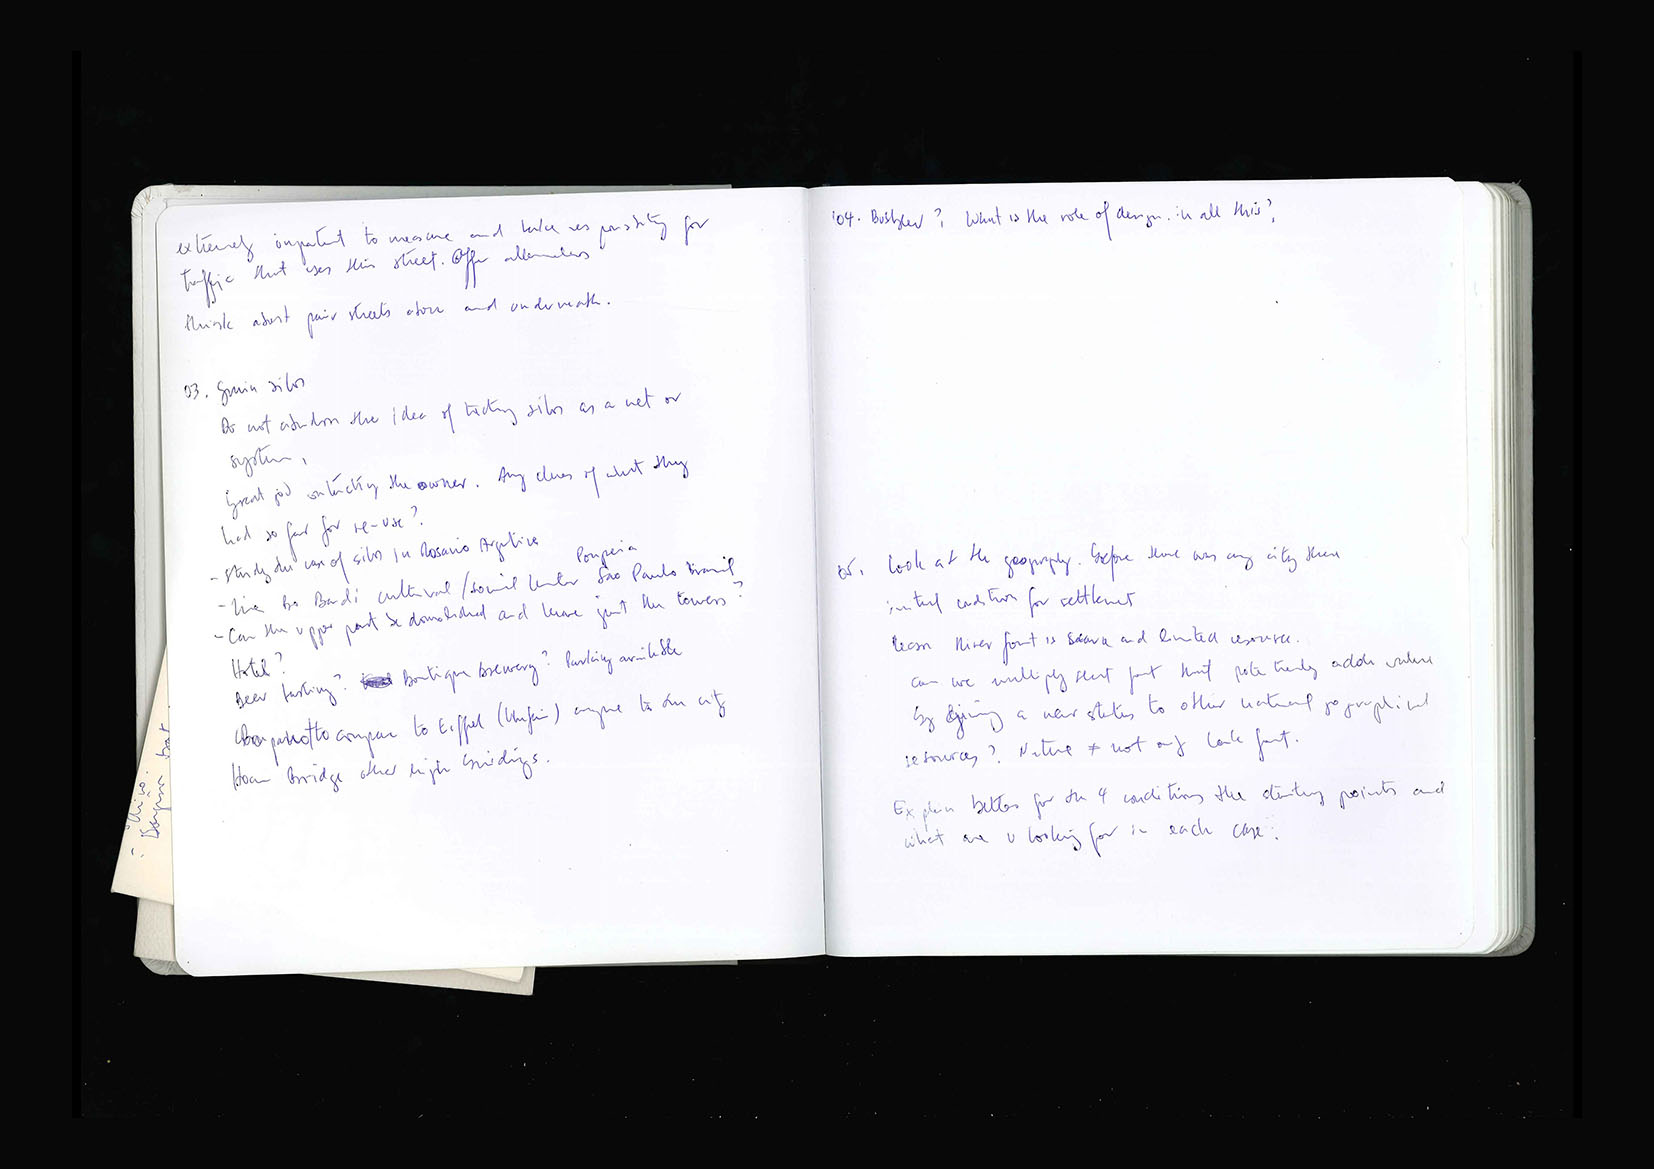 extremely important to measure and take responsibility for
traffic that uses this street. Offer alternatives
think about pair streets above and underneath.
03. Grain silos
Do not abandon the idea of treating silos as a net or
system,
Great job contacting the owner. Any clues of what they
had so far for re-use?
- Study the case of silos in Rosario Argentina
Pompeia
- Lina Bo Bardi cultural / social center São Paulo Brazil
- Can the upper part be demolished and leave just the towers?
Hotel?
Beer tasting? Boutique Brewery? Parking available
to compare to Eiffel (Unfair) to the city
Hoan Bridge other high buildings.
04. ? What is the role of design. in all this?
05. Look at the geography. Before there was any city there
initial condition for settlement
River front is scarce and limited resource.
can we multiply that front that potentially adds value
by giving a new status to other natural geographical
resources? Nature ≠ not only lake front.
Explain better for the 4 conditions the starting points and
what are u looking for in each case.